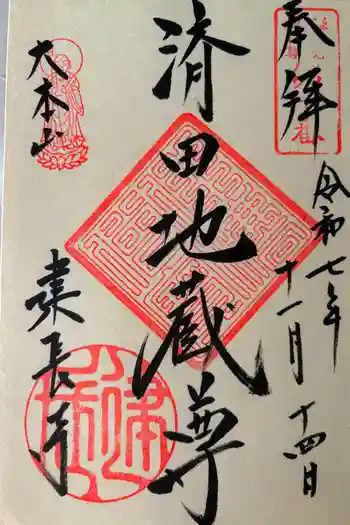 奉拝
令和七年
十一月十四日
済田地蔵尊
大本山
建長寺